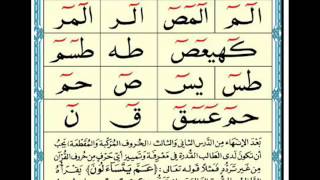 الٓمٓ الٓمٓصٓ الٓر الٓمٓر
كٓهيعٓصٓ طه طسٓمٓ
طسٓ يسٓ صٓ حمٓ
حمٓ عٓسٓقٓ قٓ نٓ
بَعْدَ الإِنْتِهَاءِ مِنَ الدَّرْسِ الثَّانِي وَالثَّالِثِ (الحُرُوفِ المُرَكَّبَةِ وَالمُقَطَّعَةِ) يَجِبُ
أَنْ تَكُونَ لَدَى الطَّالِبِ القُدْرَةُ فِي مَعْرِفَةِ وَتَمْيِيزِ أَيِّ حَرْفٍ مِنْ حُرُوفِ القُرْآنِ
مِنْ غَيْرِ تَرَدُّدٍ فَمَثَلًا قَوْلُهُ تَعَالَى: (عَمَّ يَتَسَاءَلُونَ) يَقْرَأُ